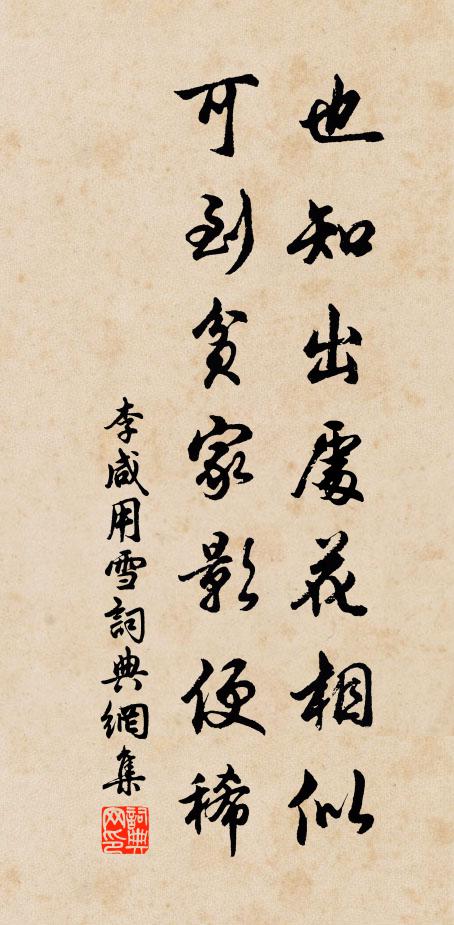 也知出處花相似
可到貧家影便稀
李咸用雪詞典網集
詞典網印